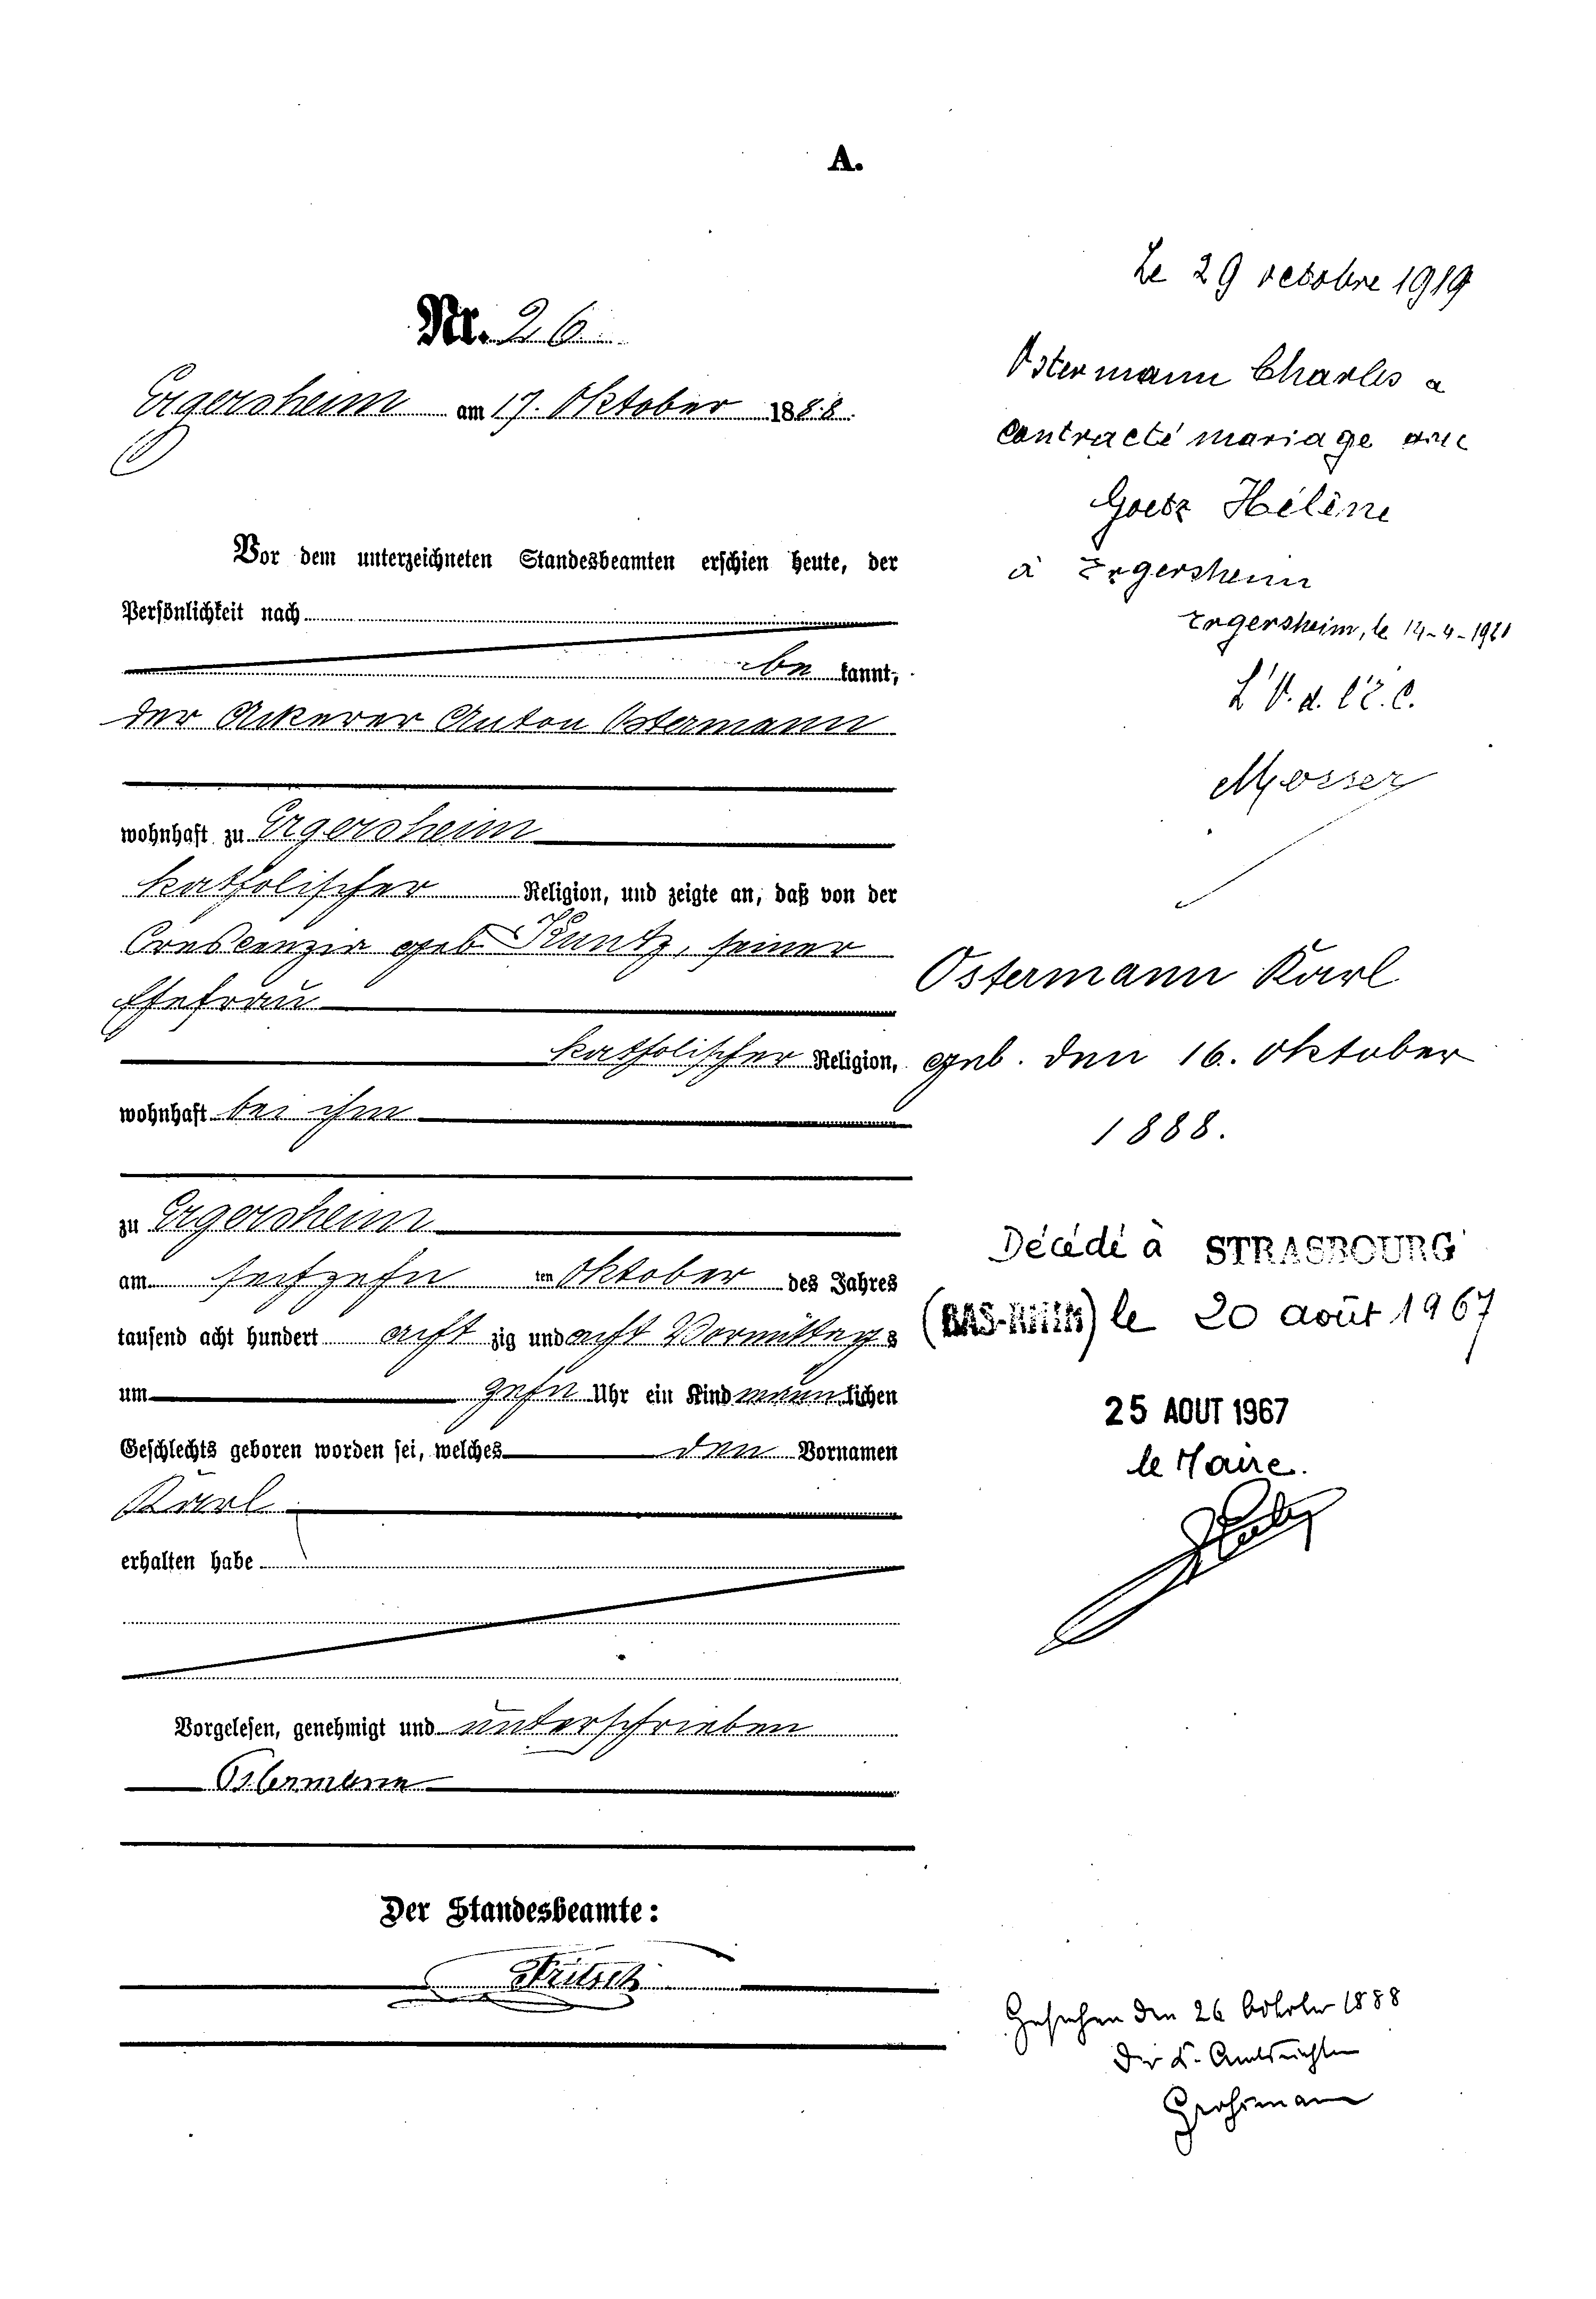 A.
Nr. 26
Ergersheim am 17. Oktober 1888.
Vor dem unterzeichneten Standesbeamten erschien heute, der
Persönlichkeit nach
be kannt,
der Ackerer Anton Ostermann
wohnhaft zu Ergersheim
katholischer Religion, und zeigte an, daß von der
Crescenzia geb Kuntz, seiner
Ehefrau
katholischer Religion,
wohnhaft bei ihm
zu Ergersheim
am sechzehn ten Oktober des Jahres
tausend acht hundert acht zig und acht Vormittags
um zehn Uhr ein Kind männlichen
Geschlechts geboren worden sei, welches den Vornamen
Karl
erhalten habe
Vorgelesen, genehmigt und unterschrieben
Ostermann
Der Standesbeamte:
Fritsch
Le 29 octobre 1919
Ostermann Charles a
contracté mariage avec
Goetz Hélène
à Ergersheim
Ergersheim, le 14-4-1921
L'O. d. l'E. C.
Mosser
Ostermann Karl
geb. den 16. Oktober
1888.
Décédé à STRASBOURG
(BAS-RHIN) le 20 août 1967
25 AOUT 1967
le Maire.
Gesehen den 26 Oktober 1888
Der K. Amtsrichter
Grohsmann